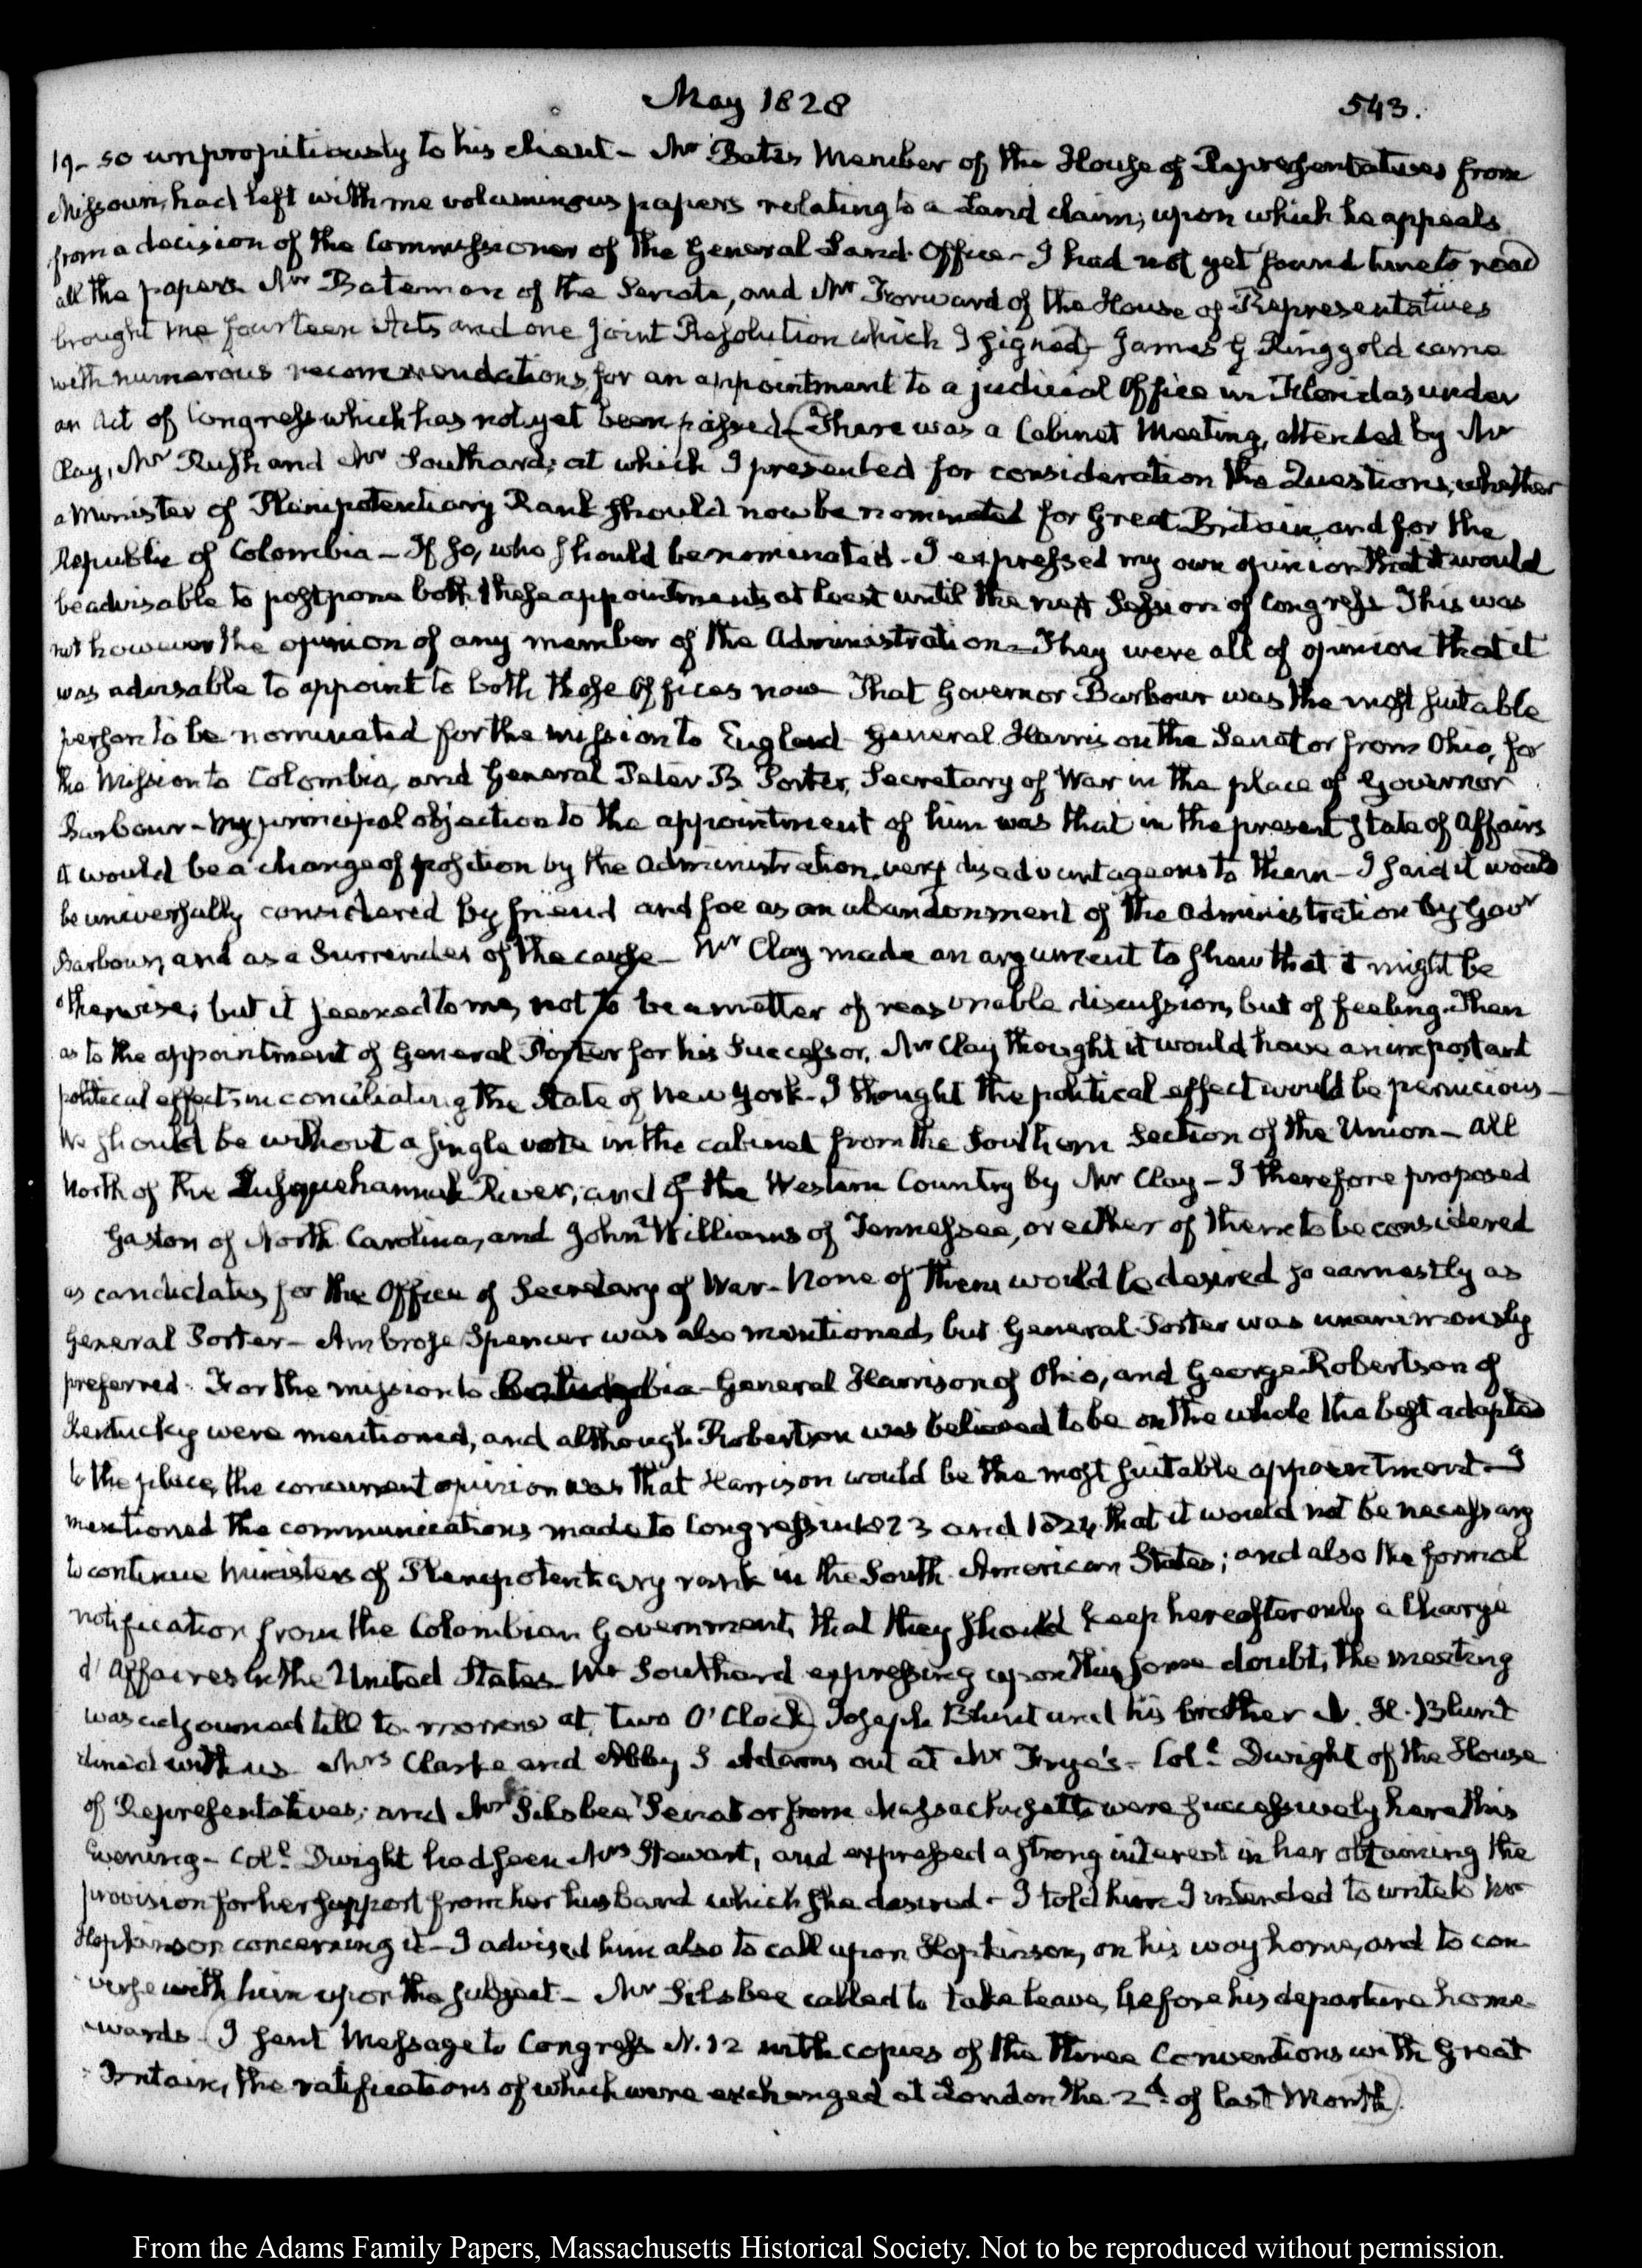 May 1828 543.
19- so unpropitiously to his client - Mr Bates Member of the House of Representatives from
Missouri, had left with me voluminous papers relating to a Land claim, upon which he appeals
from a decision of the Commissioner of the General Land Office - I had not yet found time to read
all the papers. Mr Bateman of the Senate, and Mr Forward of the House of Representatives
brought me fourteen Acts and one joint Resolution which I signed - James G Ringgold came
with numerous recommendations for an appointment to a judicial Office in Florida, under
an Act of Congress which has not yet been passed - (There was a Cabinet Meeting, attended by Mr
Clay, Mr Rush and Mr Southard; at which I presented for consideration the Questions, whether
a Minister of Plenipotentiary Rank should now be nominated for Great Britain, and for the
Republic of Colombia - If so, who should be nominated - I expressed my own opinion that it would
be advisable to postpone both these appointments at least until the next Session of Congress This was
not however the opinion of any member of the Administration - They were all of opinion that it
was advisable to appoint to both those Offices now - That Governor Barbour was the most suitable
person to be nominated for the mission to England - General Harrison the Senator from Ohio, for
the Mission to Colombia, and General Peter B Porter, Secretary of War in the place of Governor
Barbour - My principal objection to the appointment of him was that in the present state of Affairs
it would be a change of position by the Administration, very disadvantageous to them - I said it would
be universally considered by friend and foe as an abandonment of the Administration by Govr
Barbour, and as a Surrender of the cause - Mr Clay made an argument to show that it might be
otherwise; but it seemed to me, not to be a matter of reasonable discussion, but of feeling. Then
as to the appointment of General Porter for his Successor, Mr Clay thought it would have an important
political effect, in conciliating the State of New York - I thought the political effect would be pernicious -
We should be without a single vote in the cabinet from the Southern Section of the Union - all
North of the Susquehannah River, and of the Western Country by Mr Clay - I therefore proposed
Gaston of North Carolina, and John Williams of Tennessee, or either of them to be considered
as candidates for the Office of Secretary of War - None of them would be desired so earnestly as
General Porter - Ambrose Spencer was also mentioned, but General Porter was unanimously
preferred. For the mission to bia - General Harrison of Ohio, and George Robertson of
Kentucky were mentioned, and although Robertson was believed to be on the whole the best adapted
to the place, the concurrent opinion was that Harrison would be the most suitable appointment - I
mentioned the communications made to Congress in 1823 and 1824 that it would not be necessary
to continue Ministers of Plenipotentiary rank in the South American States; and also the formal
notification from the Colombian Government, that they should keep hereafter only a Charge
d'Affaires in the United States - Mr Southard expressing upon this some doubt, the meeting
was adjourned till to-morrow at two O'Clock) Joseph Blunt and his brother N. H. Blunt
dined with us - Mrs Clarke and Abby S Adams out at Mr Frye's - Colo. Dwight of the House
of Representatives; and Mr Silsbee Senator from Massachusetts were successively here this
Evening - Colo. Dwight had seen Mrs Stewart, and expressed a strong interest in her obtaining the
provision for her support from her husband which she desired - I told him I intended to write to Mr
Hopkinson concerning it - I advised him also to call upon Hopkinson, on his way home, and to con-
verse with him upon the subject - Mr Silsbee called to take leave, before his departure home-
wards - (I sent Message to Congress N. 12 with copies of the three Conventions with Great
Britain, the ratifications of which were exchanged at London the 2d. of last Month).
From the Adams Family Papers, Massachusetts Historical Society. Not to be reproduced without permission.